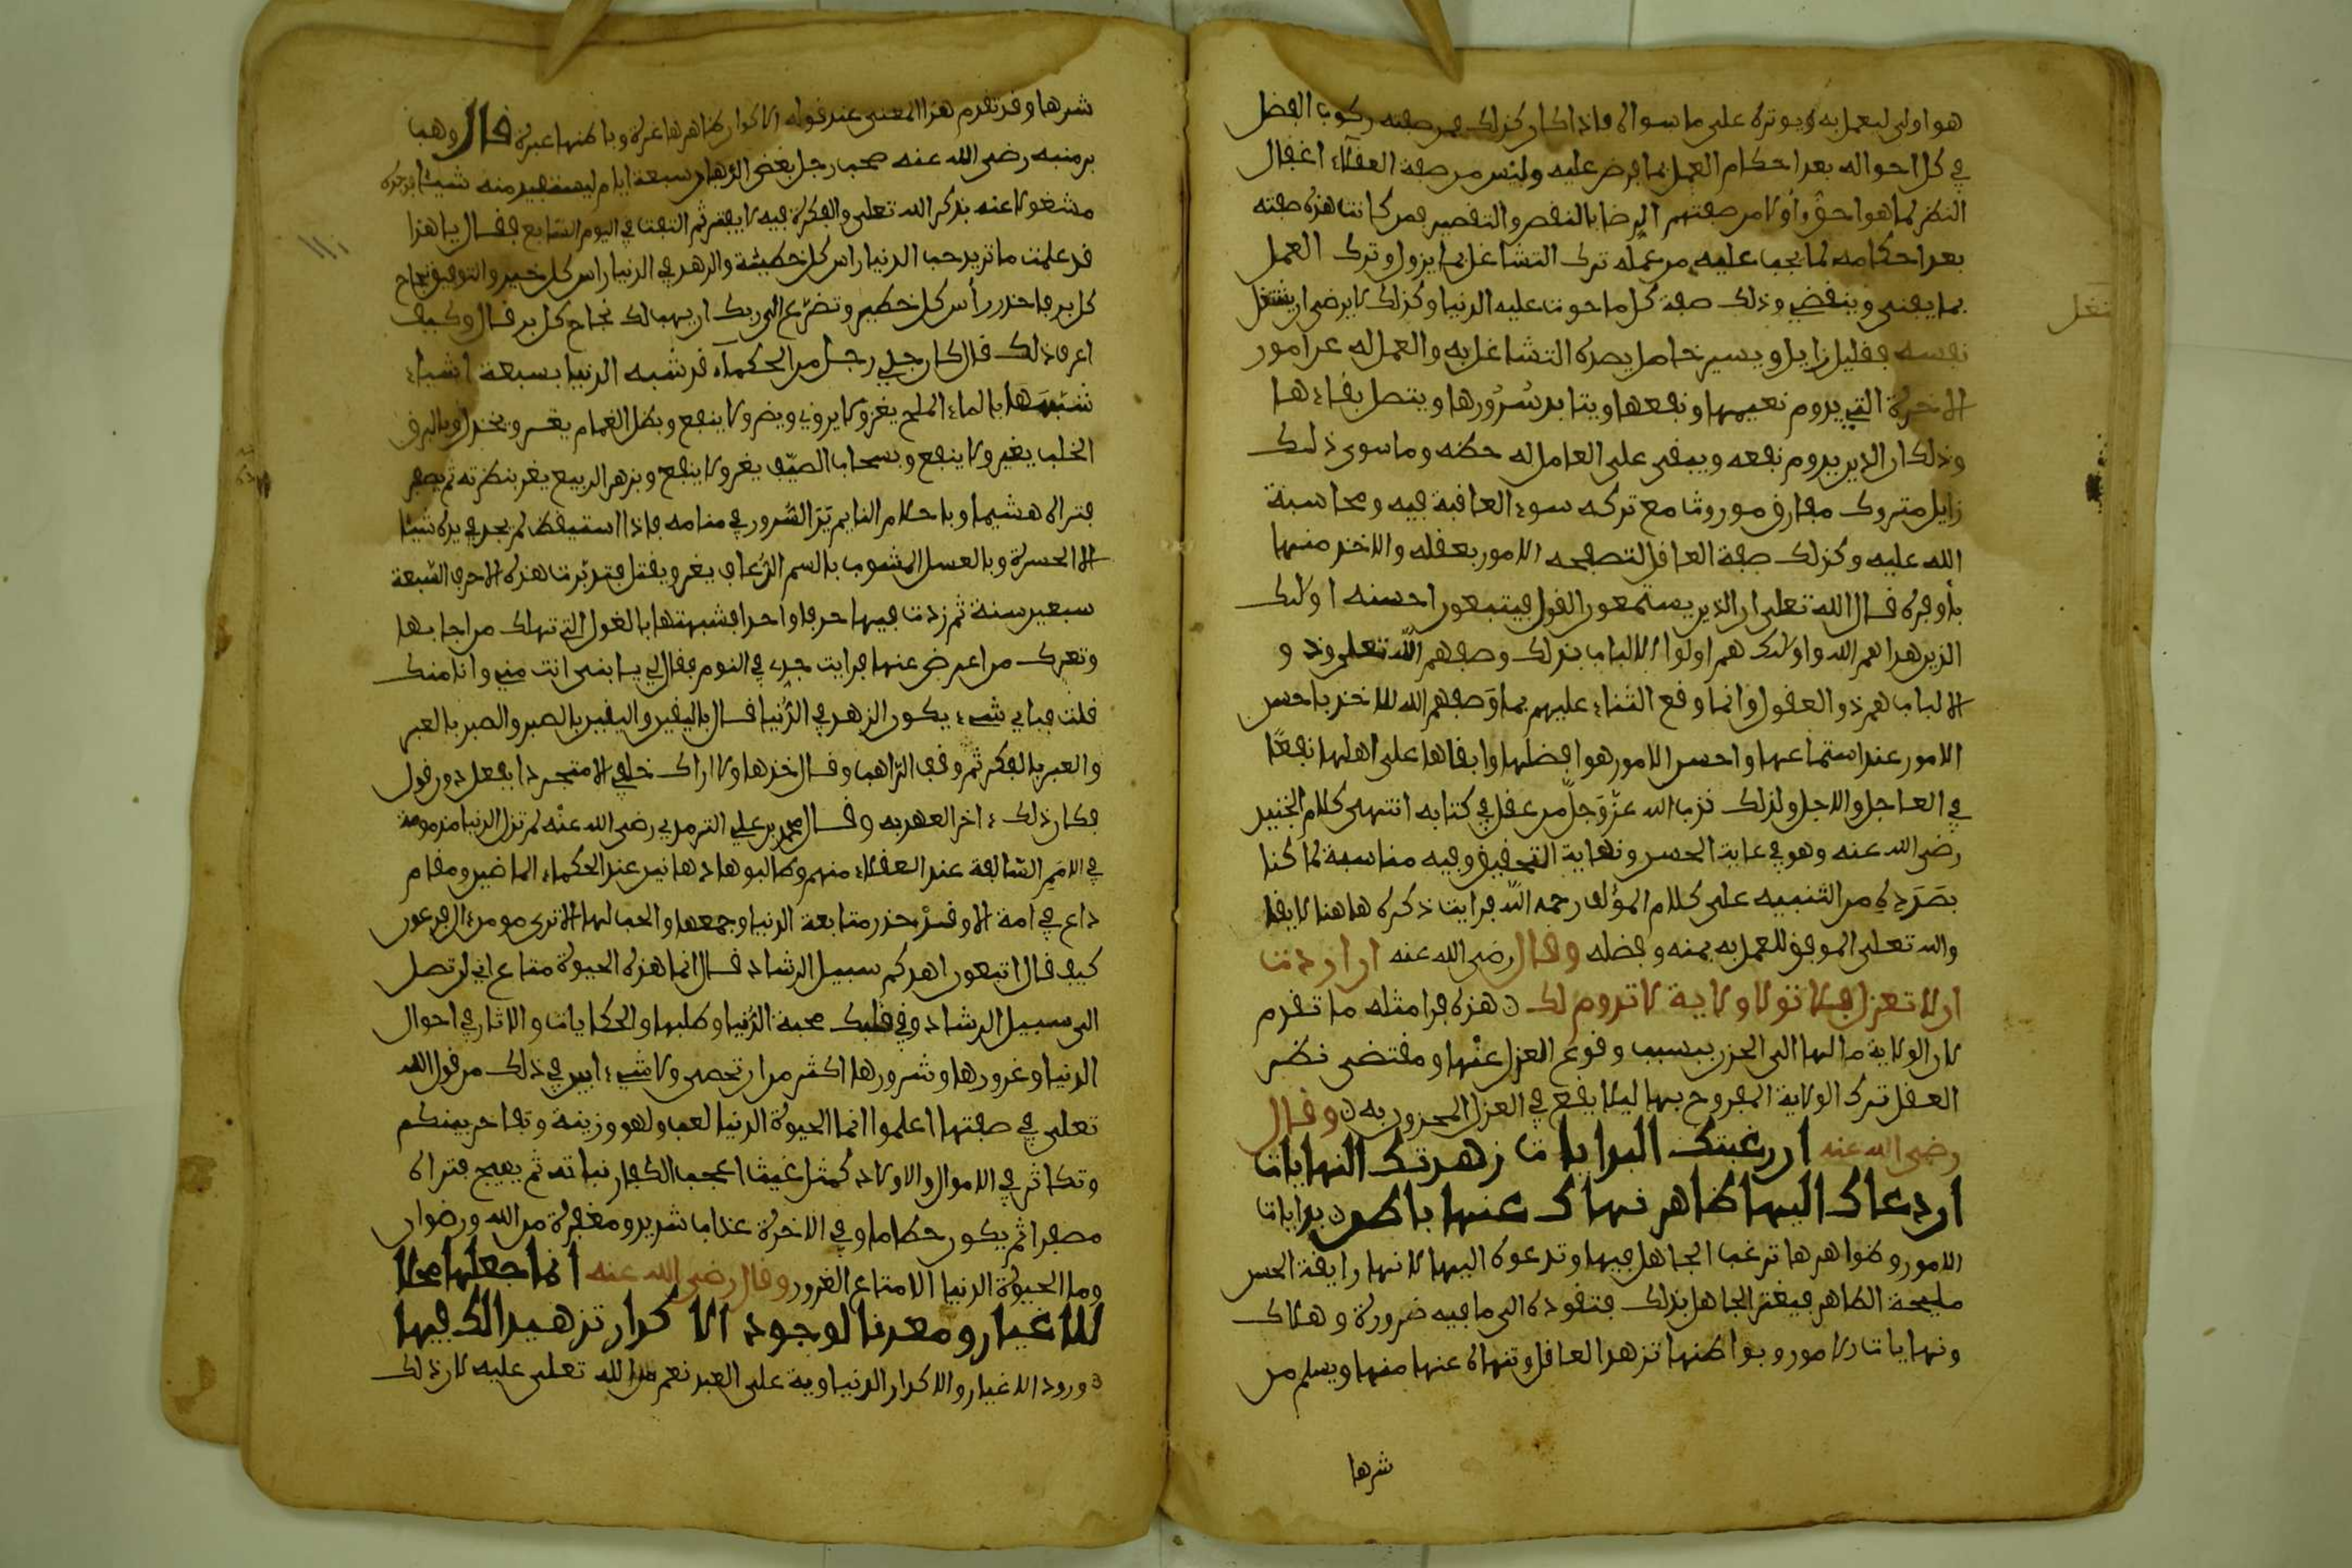 هو اولى ليعمل به ويوثره على ما سواه فاذا كان كذلك فمن صفته ركوب الفضل
في كل احواله بعد احكام العمل بما فرض عليه وليس من صفة العقلاء اغفال
النظر لما هو احق واولا من صفتهم الرضا بالنقص والتقصير فمن كانت هذه صفته
بعد احكامه لما يجب عليه من عمله ترك التشاغل بما يزول وترك العمل
بما يفنى وينقضي وذلك صفة كل ما حوت عليه الدنيا وكذلك لا يرضى ان يشتغل
نفسه بقليل زايل ويسير حايل يصده التشاغل به والعمل له عن امور
الاخرة التي يدوم نعيمها ونفعها ويتابد سرورها ويتصل بقاءها
وذلك ان الذي يدوم نفعه ويبقى على العامل له حظه وما سوى ذلك
زايل متروك مفارق موروث يخاف مع تركه سوء العاقبة فيه ومحاسبة
الله عليه وكذلك صفة العاقل لتصفحه الامور بعقله والاخذ منها
باوفره قال الله تعلى ان الذين يستمعون القول فيتبعون احسنه اولائك
الذين هداهم الله واولائك هم اولوا الالباب بذلك وصفهم الله تعلى وذوو
الالباب هم ذوو العقول وانما وقع الثناء عليهم بما وصفهم الله للاخذ باحسن
الامور عند استماعها واحسن الامور هو افضلها وابقاها على اهلها نفعا
في العاجل والاجل ولذلك ندب الله عز وجل من عقل في كتابه انتهى كلام الجنيد
رضى الله عنه وهو في غاية الحسن ونهاية التحقيق وفيه مناسبة لما كنا
بصدده من التنبيه على كلام المؤلف رحمه الله فرايت ذكره هاهنا لايقا
والله تعلى الموفق للعمل به بمنه وفضله وقال رضى الله عنه ان اردت
ان لا تعزل فلا تتول ولاية لا تدوم لك هذه من امثلة ما تقدم
لان الولاية مالها الى الحزن بسبب وقوع العزل عنها ومقتضى نظر
العقل ترك الولاية المفروح بها ليلا يقع في العزل المحزون به وقال
رضى الله عنه ان رغبتك البدايات زهدتك النهايات
ان دعاك اليها ظاهر نهاك عنها باطن بدايات
الامور وظواهرها ترغب الجاهل فيها وتدعوه اليها لانها رايقة الحسن
مليحة الظاهر فيغتر الجاهل بذلك فتقوده الى ما فيه ضرره وهلاك
ونهايات الامور وبواطنها تزهد العاقل وتنهاه عنها منها ويسلم من
شرها
شرها وقد تقدم هذا المعنى عند قوله الاكوان ظاهرها غرة وباطنها عبرة قال وهب
بن منبه رضى الله عنه صحب رجل بعض الرهبان سبعة ايام ليستفيد منه شيئا فوجده
مشغولا عنه بذكر الله تعلى والفكرة فيه لا يفتر ثم التفت في اليوم السابع فقال يا هذا
قد علمت ما تريد حب الدنيا راس كل خطيئة والزهد في الدنيا راس كل خير والتوفيق نجاح
كل بر فاحذر رأس كل خطيئة وتضرع الى ربك ان يهب لك نجاح كل بر قال وكيف
اعرف ذلك قال كان جدي رجل من الحكماء قد شبه الدنيا بسبعة اشياء
شبهها بالماء الملح يغر ولا يروي ويضر ولا ينفع وبظل الغمام يغر ويخذل وبالبرق
الخلب يغر ولا ينفع وبسحاب الصيف يغر ولا ينفع وبزهر الربيع يغر بنضرته ثم يصفر
فتراه هشيما وباحلام النايم يرى السرور في منامه فاذا استيقظ لم يجد في يده شيئا
الا الحسرة وبالعسل المشوب بالسم الزعاف يغر ويقتل فتدبرت هذه الاحرف السبعة
سبعين سنة ثم زدت فيها حرفا واحدا فشبهتها بالغول التي تهلك من اجابها
وتترك من اعرض عنها فرايت جدي في النوم فقال لي يا بني انت مني وانا منك
قلت فباي شيء يكون الزهد في الدنيا قال باليقين واليقين بالصبر والصبر بالعبر
والعبر بالفكر ثم وقف الراهب وقال خذها ولا اراك خلفي الا متجردا بفعل دون قول
فكان ذلك ءاخر العهد به وقال محمد بن علي الترمذي رضى الله عنه لم تزل الدنيا مذمومة
في الامم السالفة عند العقلاء منهم وطالبوها مهانين عند الحكماء الماضين وما قام
داع في امة الا وقد حذر متابعة الدنيا وجمعها والحب لها الا ترى مومن ءال فرعون
كيف قال اتبعون اهدكم سبيل الرشاد قال انما هذه الحيوة متاع اي لن تصل
الى سبيل الرشاد وفي قلبك محبة الدنيا وطلبها والحكايات والاثار في احوال
الدنيا وغرورها وشرورها اكثر من ان تحصى ولا شيء ابين في ذلك من قول الله
تعلى في صفتها اعلموا انما الحيوة الدنيا لعب ولهو وزينة وتفاخر بينكم
وتكاثر في الاموال والاولاد كمثل غيث اعجب الكفار نباته ثم يهيج فتراه
مصفرا ثم يكون حطاما وفي الاخرة عذاب شديد ومغفرة من الله ورضوان
وما الحيوة الدنيا الا متاع الغرور وقال رضى الله عنه انما جعلها محلا
للاغيار ومعدنا لوجود الاكدار تزهيدا لك فيها
ورود الاغيار والاكدار الدنياوية على العبد نعم من الله تعلى عليه لان ذلك